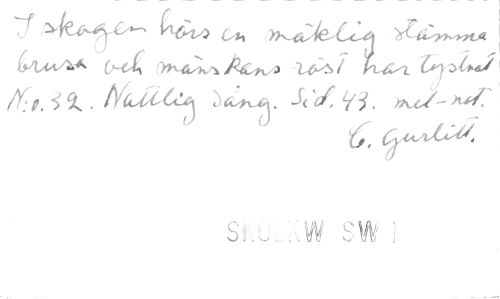 I skogen hörs en mäktig stämma
brusa och människans röst har tystnat
N:o.32. Nattlig sång. Sid. 43. mel-not.
C. Gurlitt.
SW